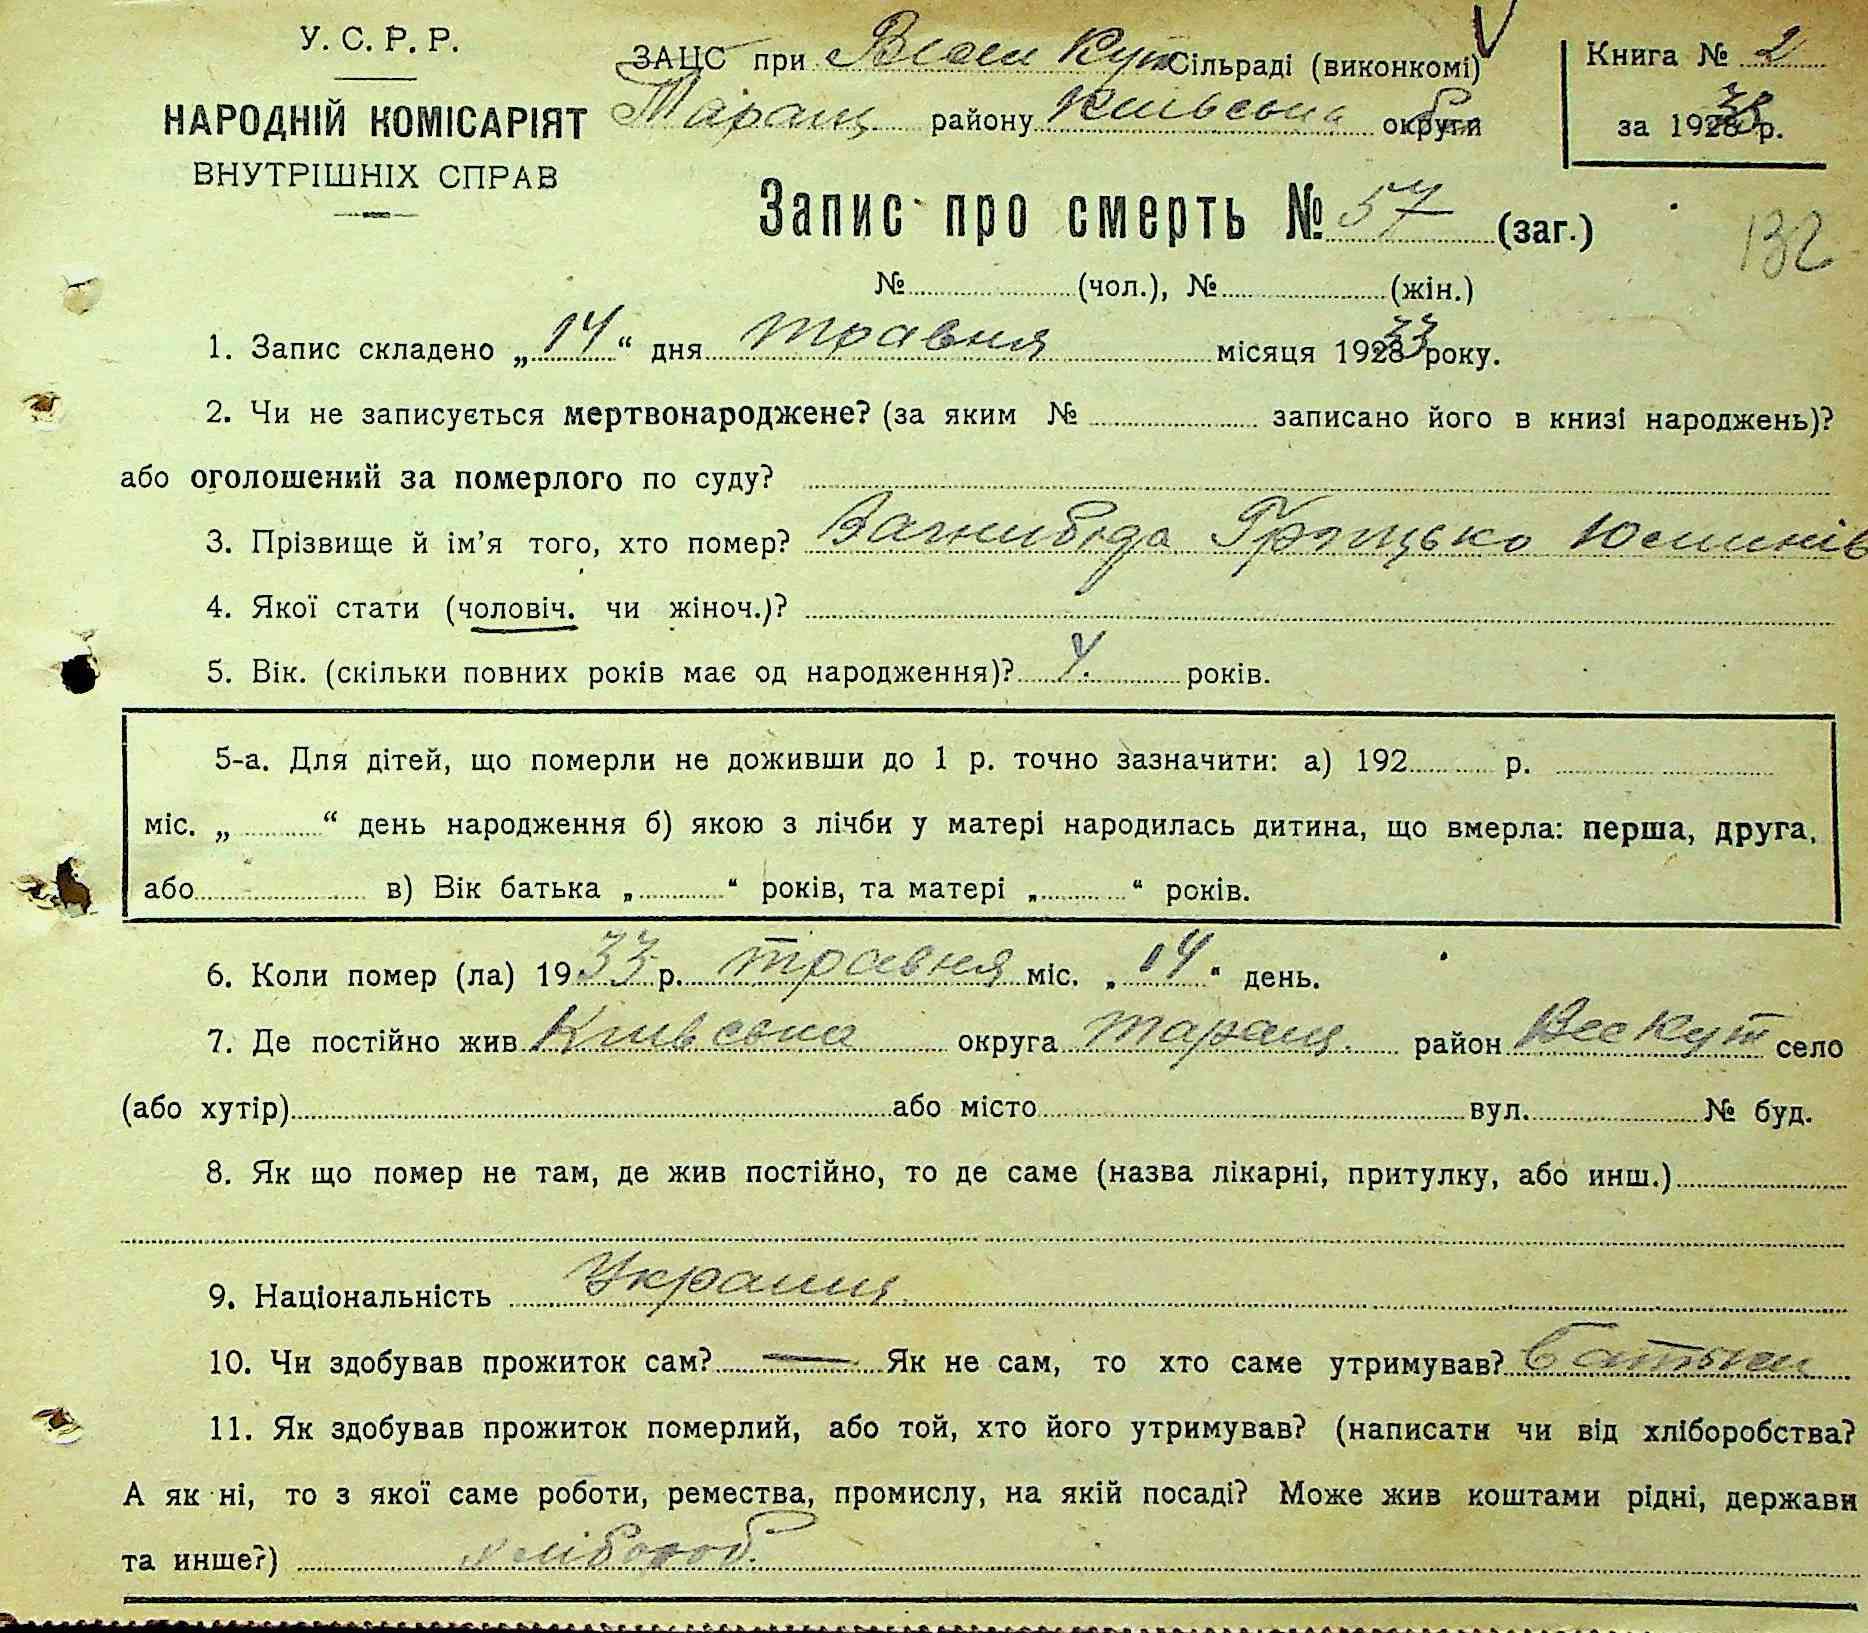 У. С. Р. Р.
НАРОДНІЙ КОМІСАРІЯТ
ВНУТРІШНІХ СПРАВ
ЗАЦС при Веси Кут Сільраді (виконкомі)
Таращ району Київська округи
Книга № 2
за 1933 р.
Запис про смерть № 57 (заг.)
132
№ (чол.), № (жін.)
1. Запис складено „14“ дня травня місяця 1933 року.
2. Чи не записується мертвонароджене? (за яким № записано його в книзі народжень)?
або оголошений за померлого по суду?
3. Прізвище й ім'я того, хто помер? Загнибіда Грицько
4. Якої стати (чоловіч. чи жіноч.)?
5. Вік. (скільки повних років має од народження)? 4. років.
5-а. Для дітей, що померли не доживши до 1 р. точно зазначити: а) 192 р.
міс. „ “ день народження б) якою з лічби у матері народилась дитина, що вмерла: перша, друга,
або в) Вік батька „ “ років, та матері „ “ років.
6. Коли помер (ла) 1933 р. травня міс. „14“ день.
7. Де постійно жив Київська округа Таращ. район Вес Кут село
(або хутір) або місто вул. № буд.
8. Як що помер не там, де жив постійно, то де саме (назва лікарні, притулку, або инш.)
9. Національність Українц.
10. Чи здобував прожиток сам? — Як не сам, то хто саме утримував? батьки
11. Як здобував прожиток померлий, або той, хто його утримував? (написати чи від хліборобства?
А як ні, то з якої саме роботи, ремества, промислу, на якій посаді? Може жив коштами рідні, держави
та инше?) хлібороб.